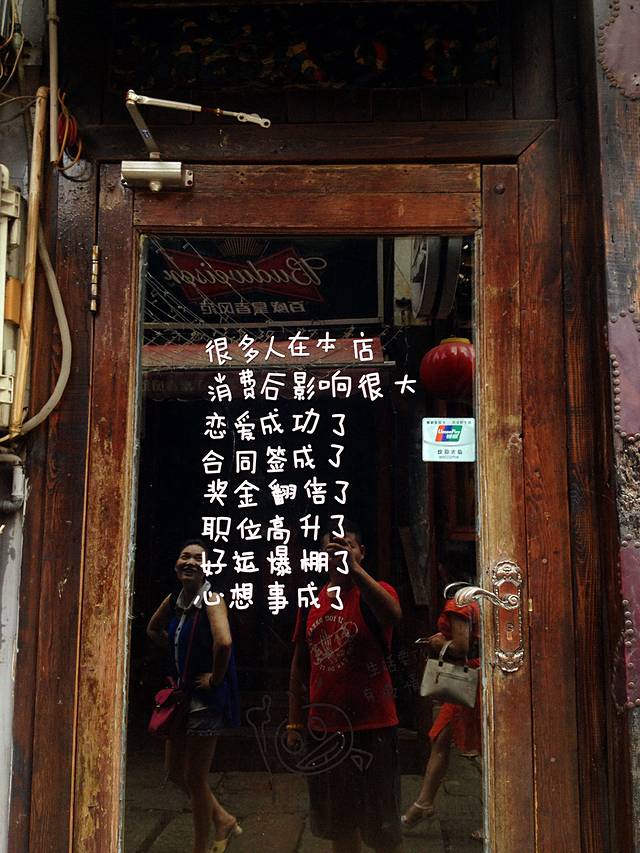 Budweiser
百威皇者风范
很多人在本店
消费后影响很大
恋爱成功了
合同签成了
奖金翻倍了
职位高升了
好运爆棚了
心想事成了
UnionPay
银联
欢迎光临